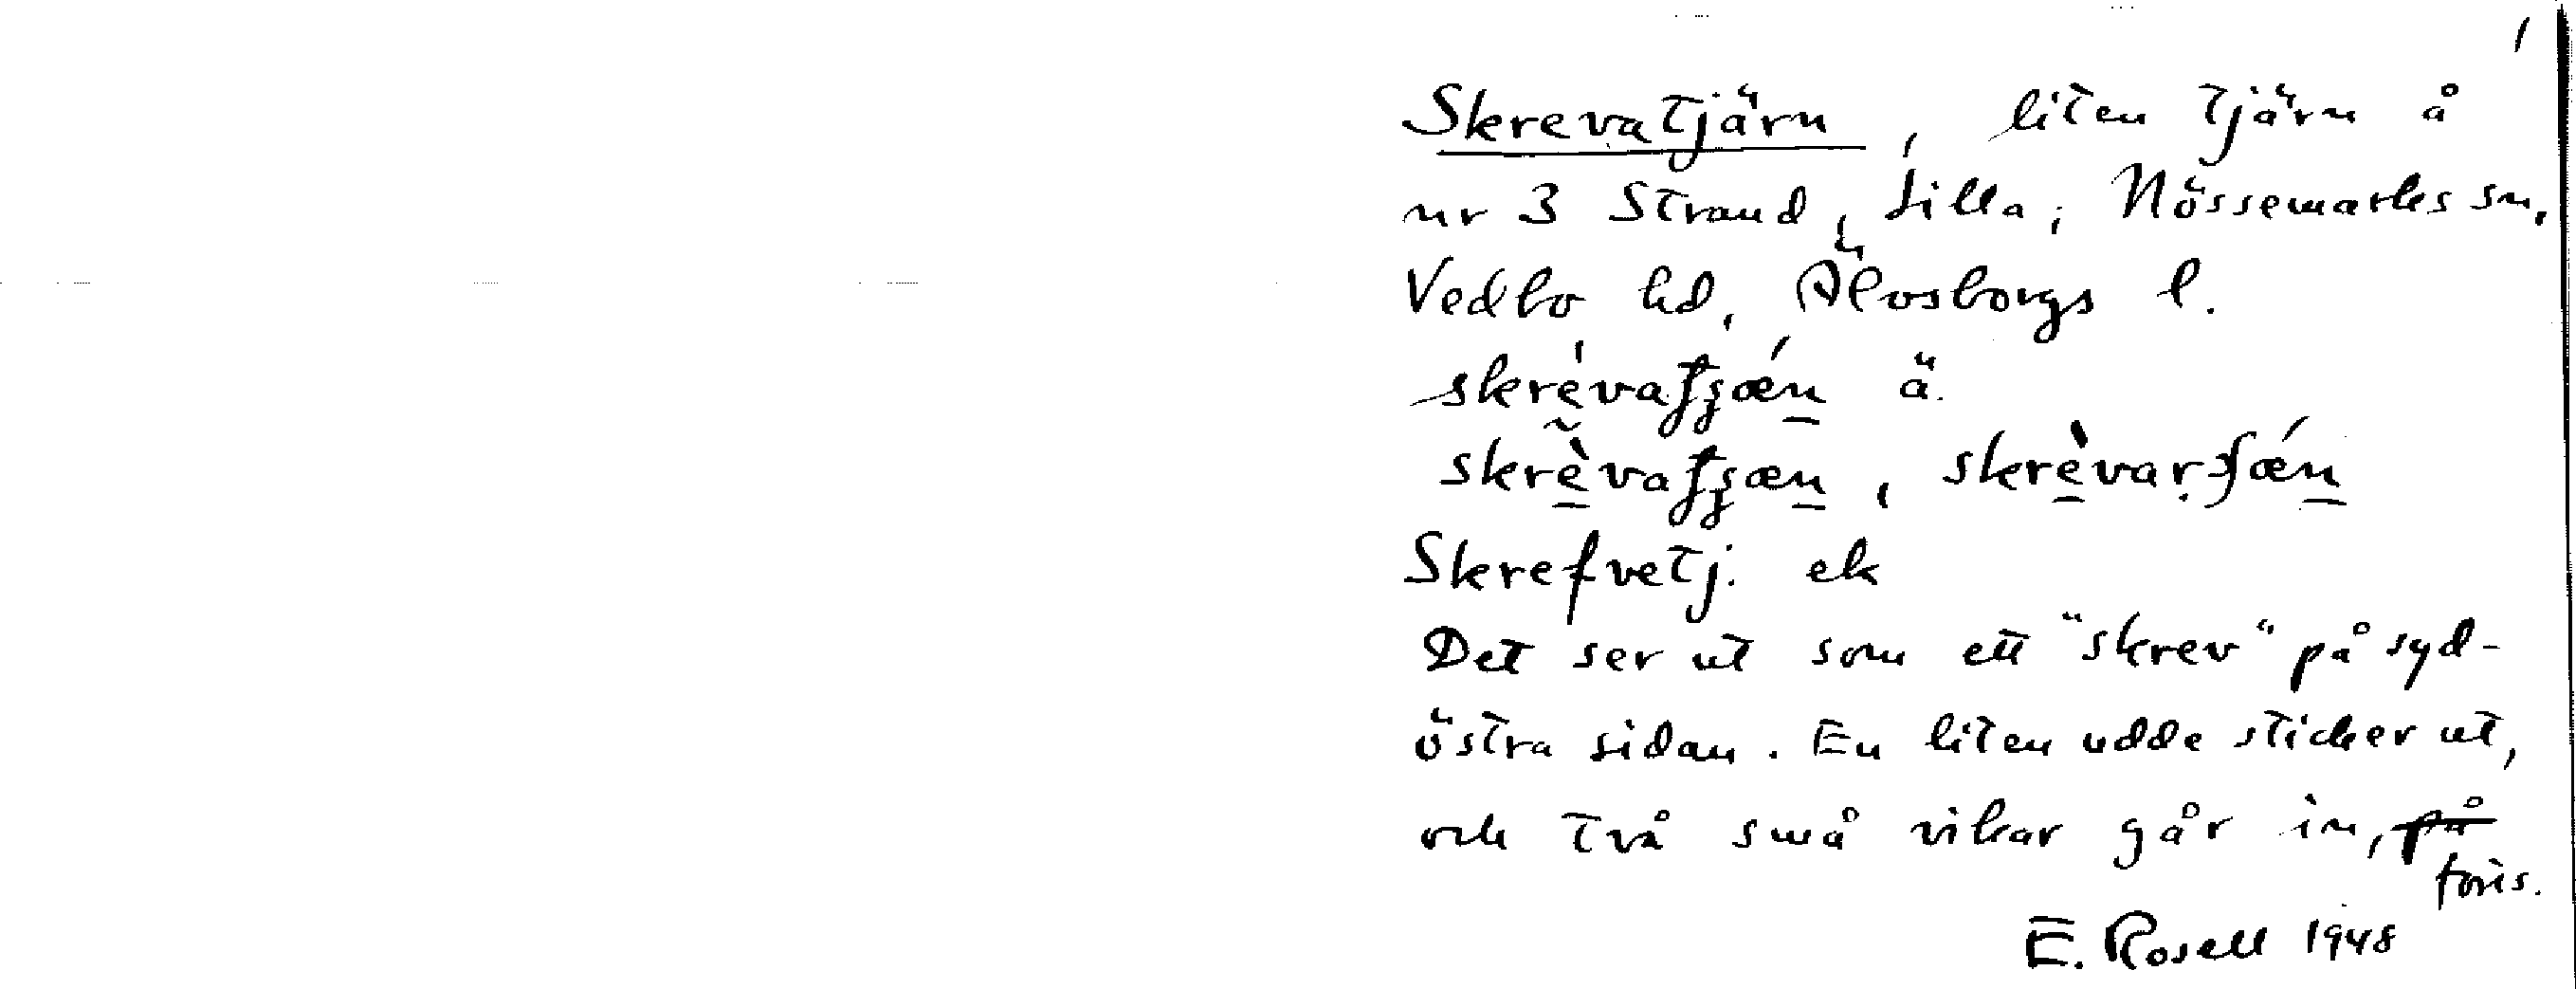 Skrevatjärn, liten tjärn å
nr 3 Strand, Lilla, Nössemarks sn,
Vedbo hd, Älvsborgs l.
ä.
Skrefvetj. ek
Det ser ut som ett "skrev" på syd-
östra sidan. En liten udde sticker ut,
och två små vikar går in, på
E. Rosell 1948